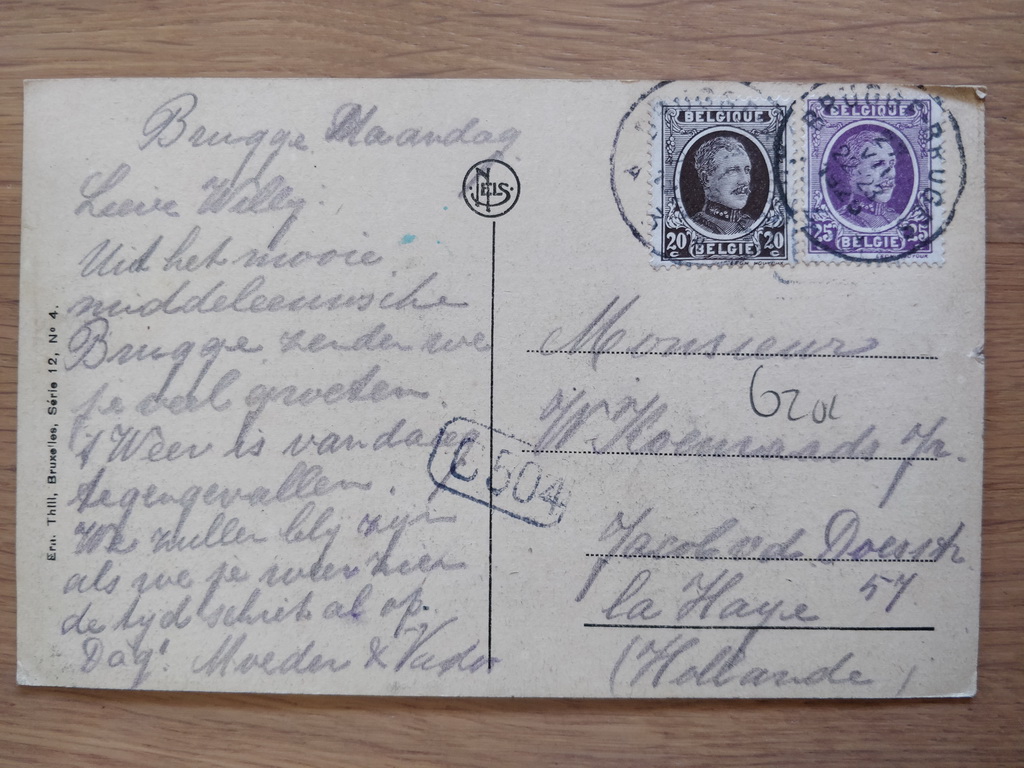 Brugge Maandag
Lieve Willy.
Uit het mooie
middeleeuwsche
Brugge zenden we
je veel groeten.
't Weer is vandaag
tegengevallen.
We zullen bly zyn
als we je weer zien
de tyd schiet al op.
Dag! Moeder & Vader
NELS
Ern. Thill, Bruxelles, Série 12, No 4.
BELGIQUE
20c BELGIE 20c
BELGIQUE
25c BELGIE 25c
BRUGGE BRUGES
Monsieur
620L
W Koenraads Jr.
C504
Jacob v d Doesstr
57
la Haye
(Hollande)